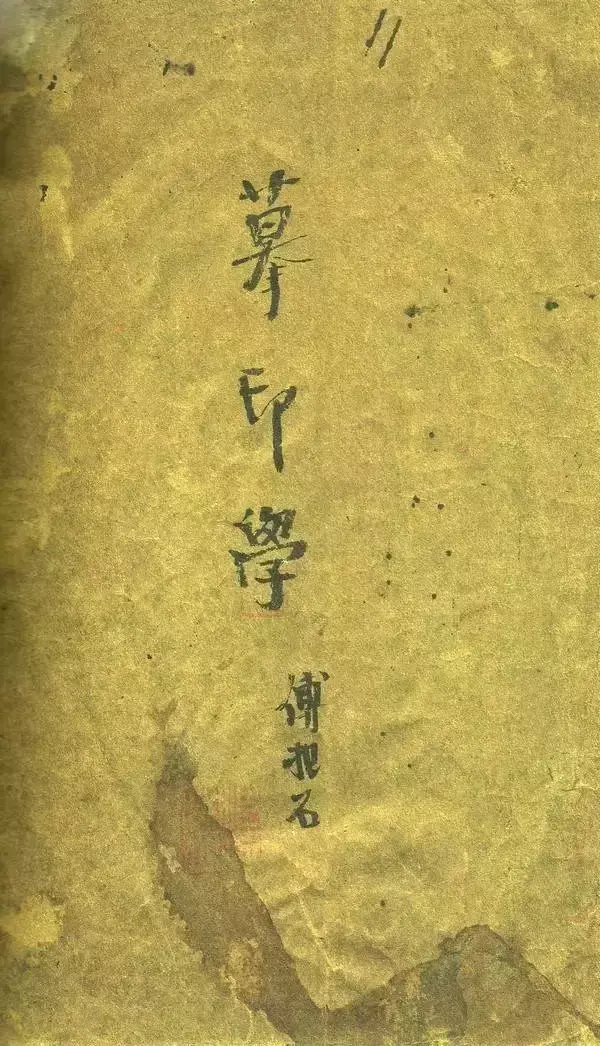 摹印學
傅抱石